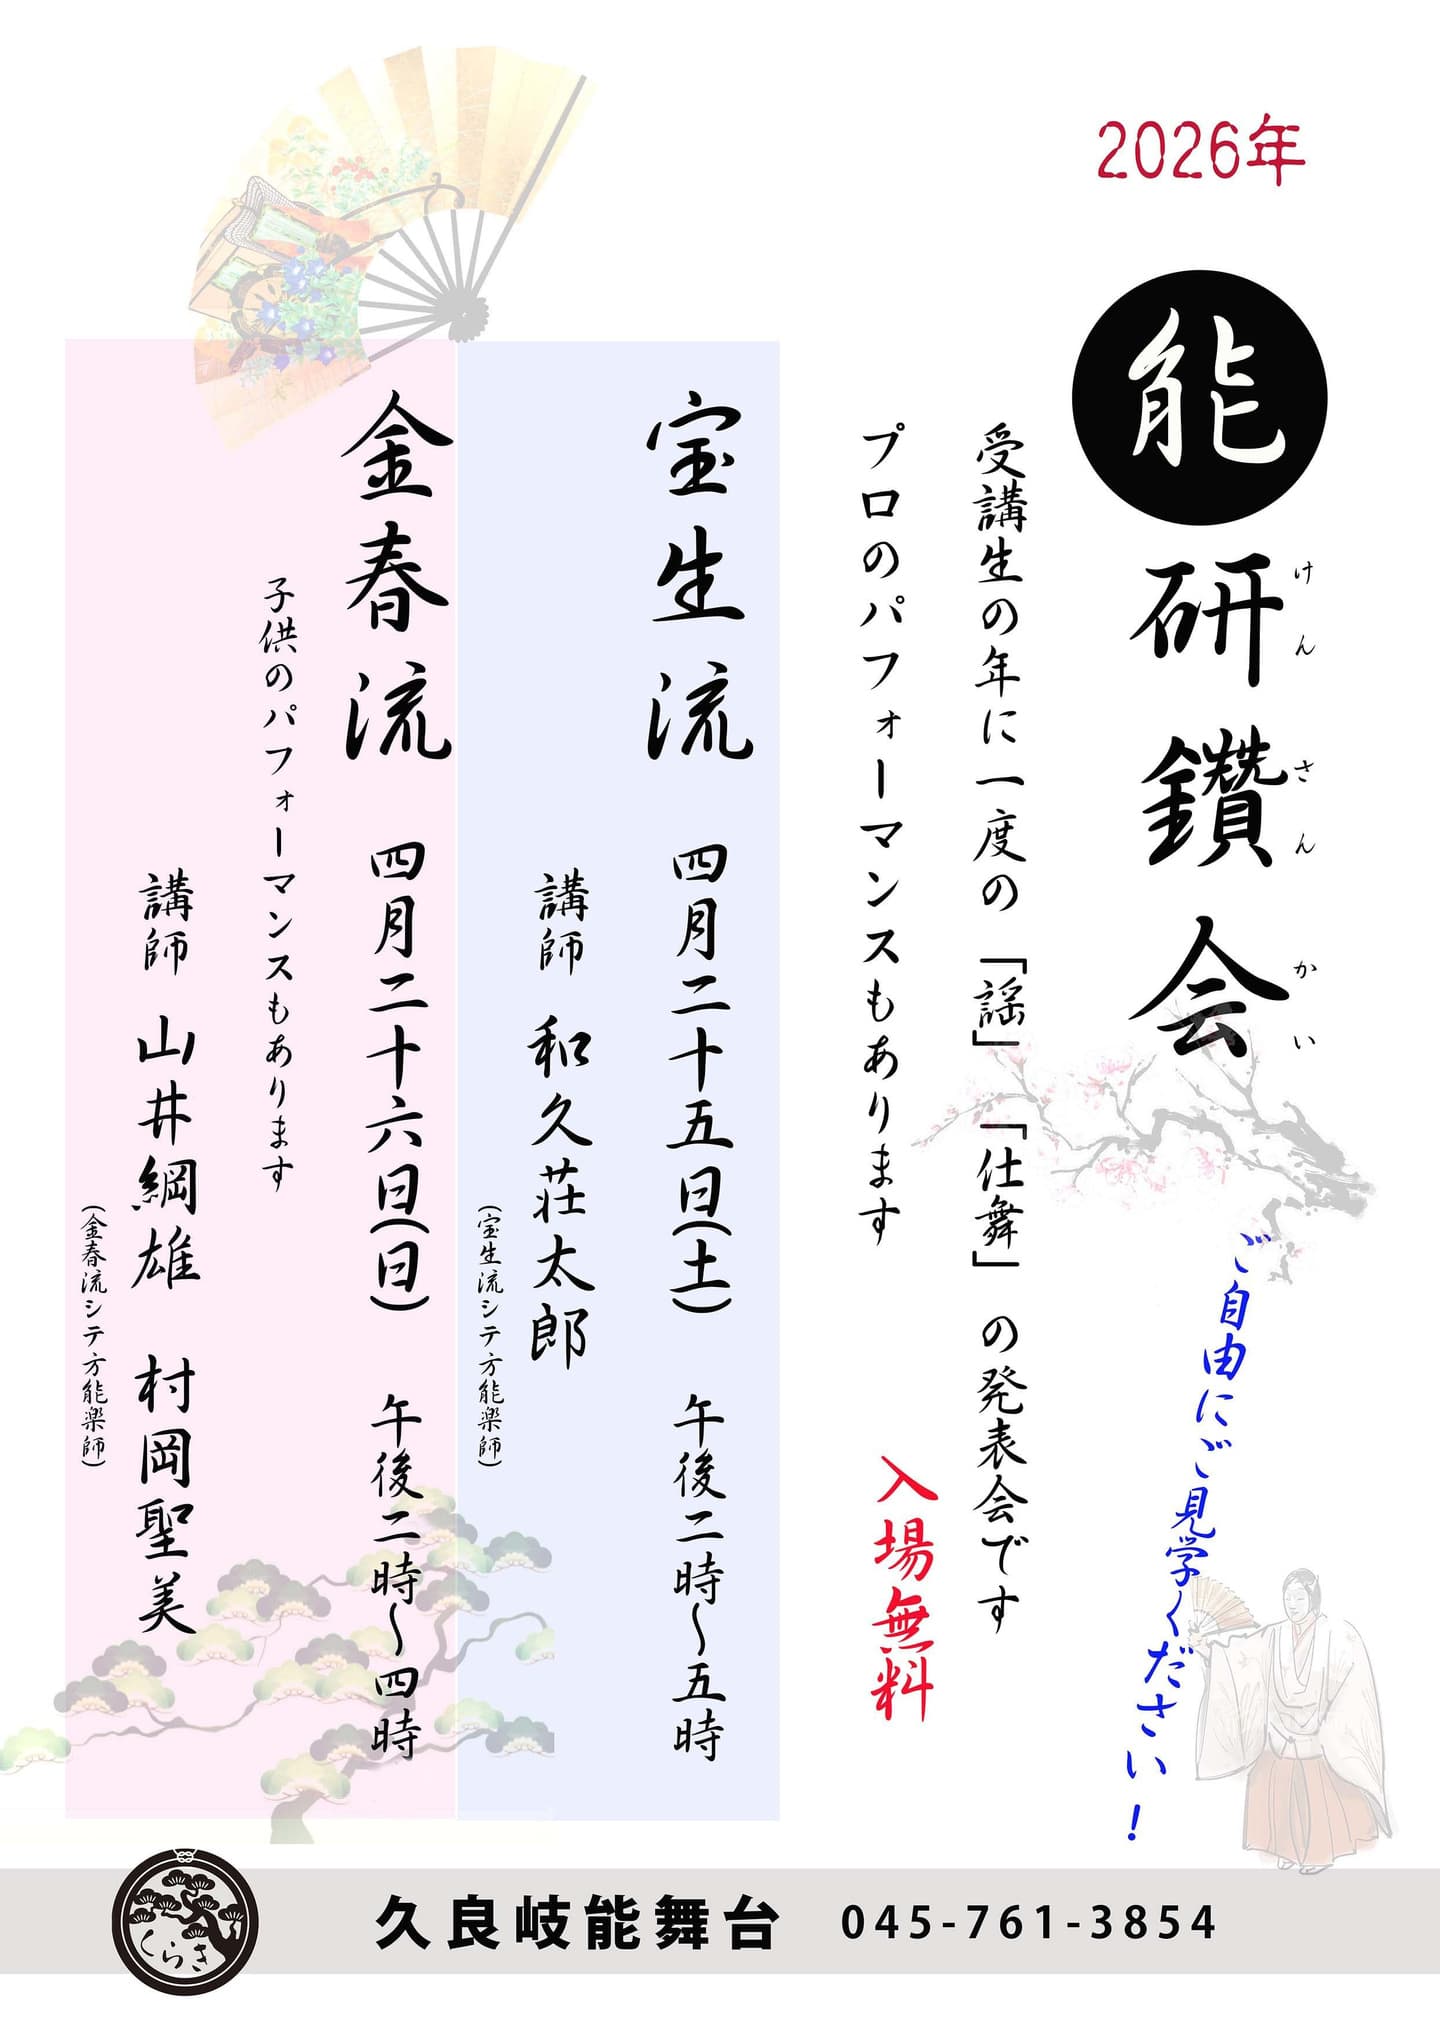 2026年
能研鑽会
けんさんかい
ご自由にご見学ください！
受講生の年に一度の「謡」「仕舞」の発表会です
プロのパフォーマンスもあります
入場無料
宝生流 四月二十五日(土) 午後二時～五時
講師 和久荘太郎
(宝生流シテ方能楽師)
金春流 四月二十六日(日) 午後二時～四時
子供のパフォーマンスもあります
講師 山井綱雄 村岡聖美
(金春流シテ方能楽師)
くらき
久良岐能舞台 045-761-3854